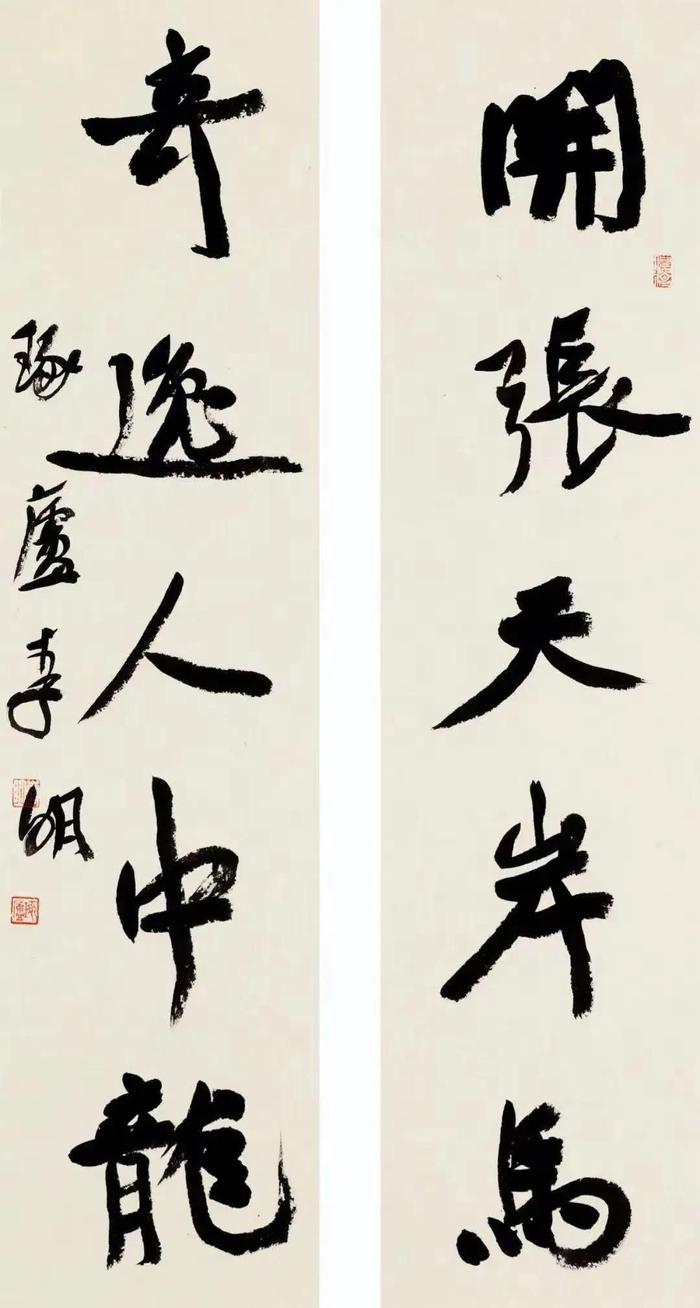 開張天岸馬
奇逸人中龍
琢廬李明